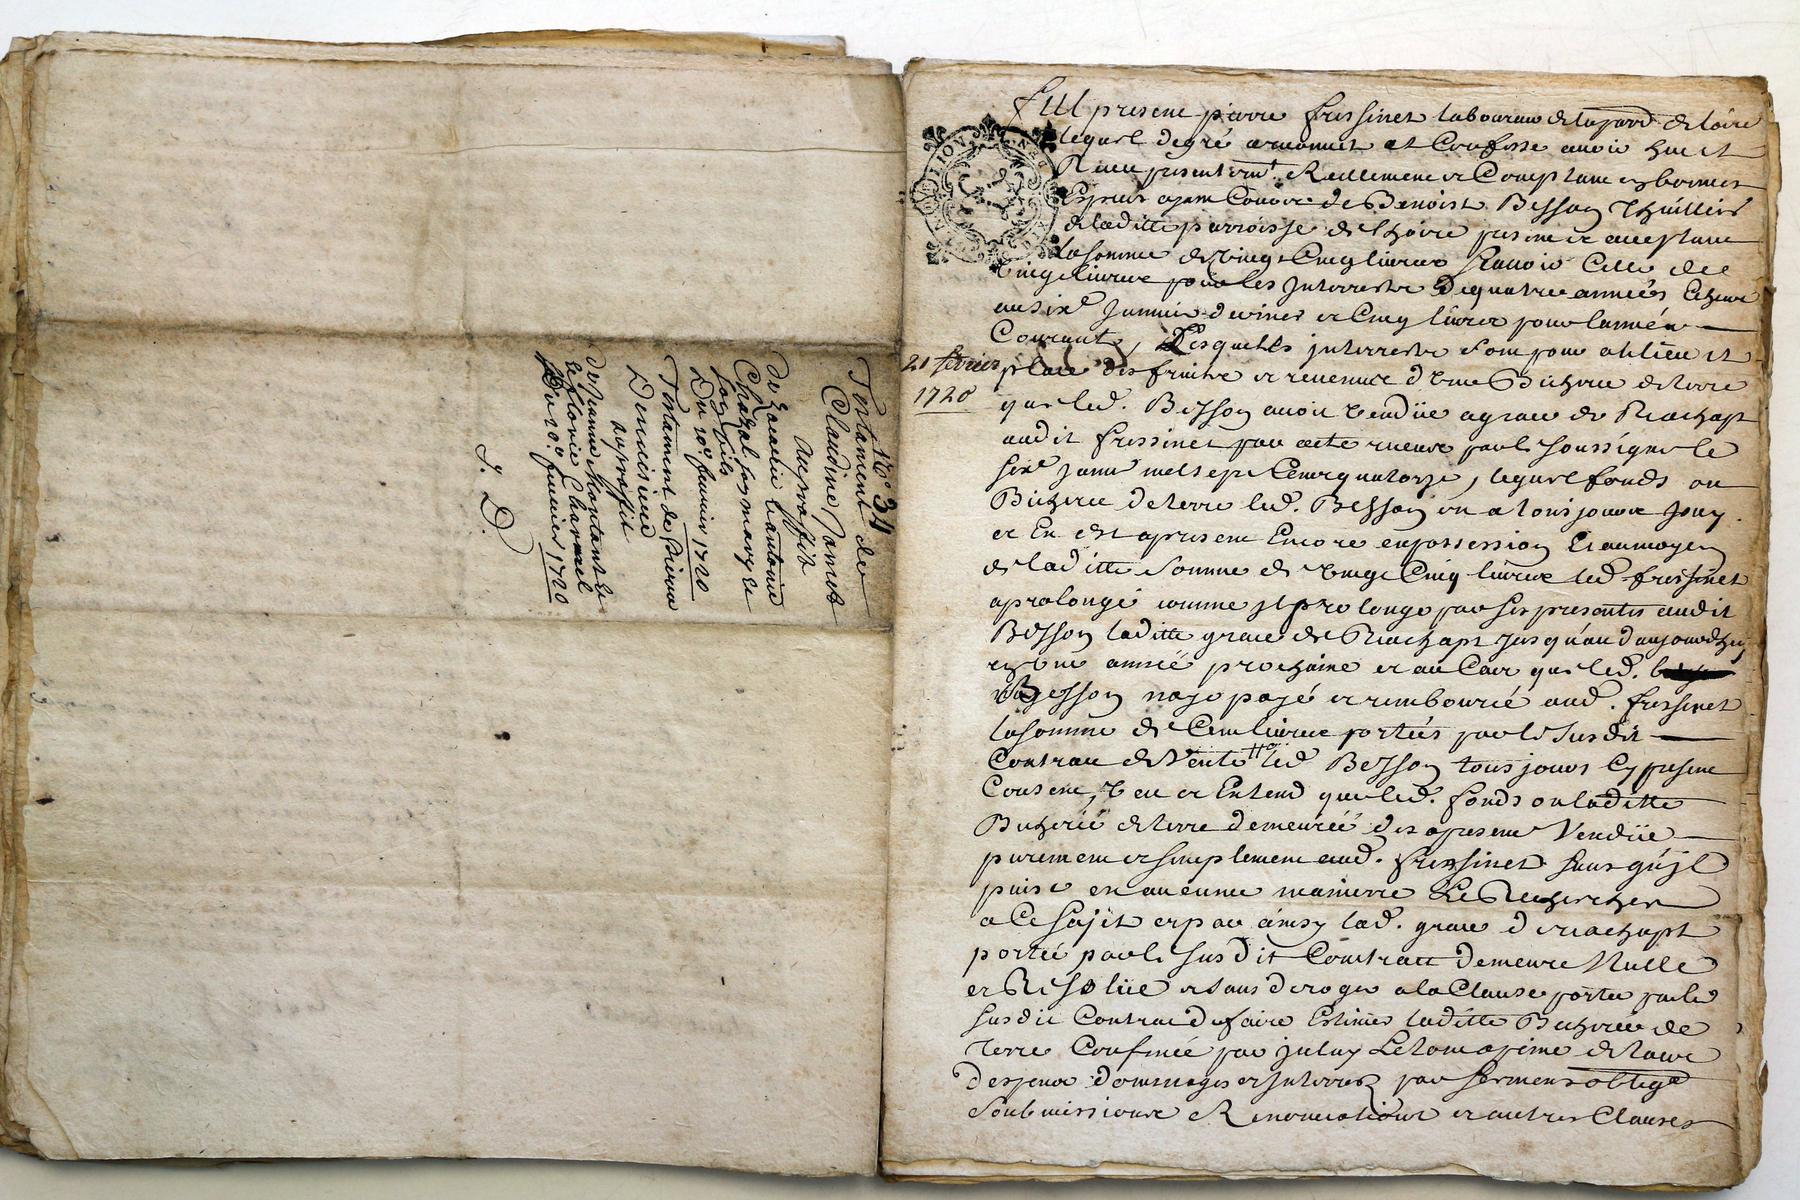 N.° 34
Testament de
Claudine Jamet
au proffit
de Zacarie & antoine
Chazal son mary &
son fils
Du 10.e fevrier 1720
Testament de Pierre
au proffit
de Jeanne
& florie
Du 10.e fevrier 1720
J. D.
GEN. DE LION
21 fevrier
1720
fut present pierre fressinet laboureur de la parr. de loire
lequel de gré a reconnut et Confesse avoir heu et
Receu presentemt. Reellement et Comptant en bonnes
Especes ayant Cours de Benoist Besson Thuillier
de laditte parroisse de present et acceptant
la somme de vingt Cinq livres sçavoir Celle de
vingt livres pour les Interrests de quatre années Echeue
au sixe. Janvier dernier et Cinq livres pour l'année
Courante, Lesquells interrests sont pour et lieu et
place des fruits et revenus d'une Bicherée de terre
que led. Besson avoit vendüe a grace de Reachapt
audit fressinet par acte receu par le soussigné le
sixe. janvr. mil sept Cent quatorze, lequel fonds ou
Bicherée de terre led. Besson en a tousjours jouy
et En est apresent Encore en possession Et au moyen
de laditte somme de vingt Cinq livres led. fressinet
a prolongé comme il prolonge par ses presentes audit
Besson laditte grace de Reachapt jusqu'au d'aujourdhuy
en une année prochaine et au Cas que led.
Besson naye payé et remboursé aud. fressinet
la somme de Cent livres portées par le susdit
Contract de Vente led. Besson tousjours Cy present
Consent, veu et Entend que led. fonds ou laditte
Bicherée de terre demeurée des apresent Vendüe
purement et simplement aud. fressinet sans qu'jl
puisse en aucune manierre Le Rechercher
a Ce sujet et par ainsy lad. grace de reachapt
portée par le susdit Contract demeure Nulle
et Resolüe et sans deroger a la Clause portée par led.
susdit Contract de faire Estimer laditte Bicherée de
Terre Confinée par jceluy Le tout a peine de tous
despens dommages et Interrests par serment oblige
soubmissions Renonciations et autres Clauses